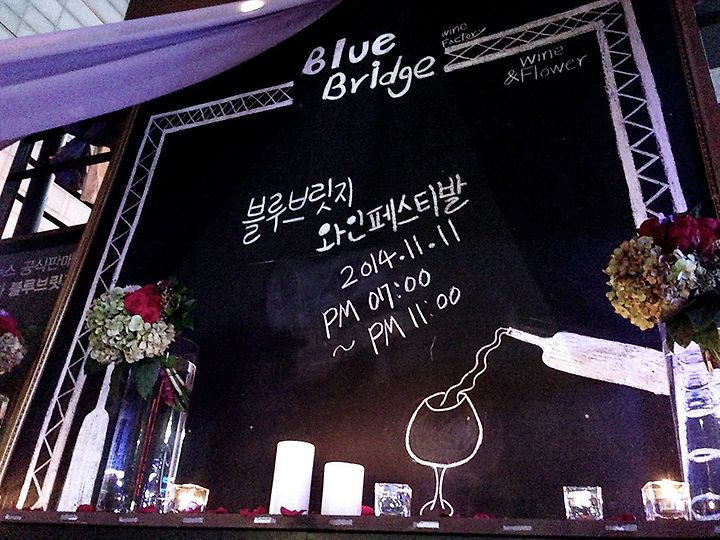 Blue
Bridge
wine
Factory
wine
&Flower
블루브릿지
와인페스티발
2014.11.11
PM 07:00
~ PM 11:00
공식판매
블루브릿지